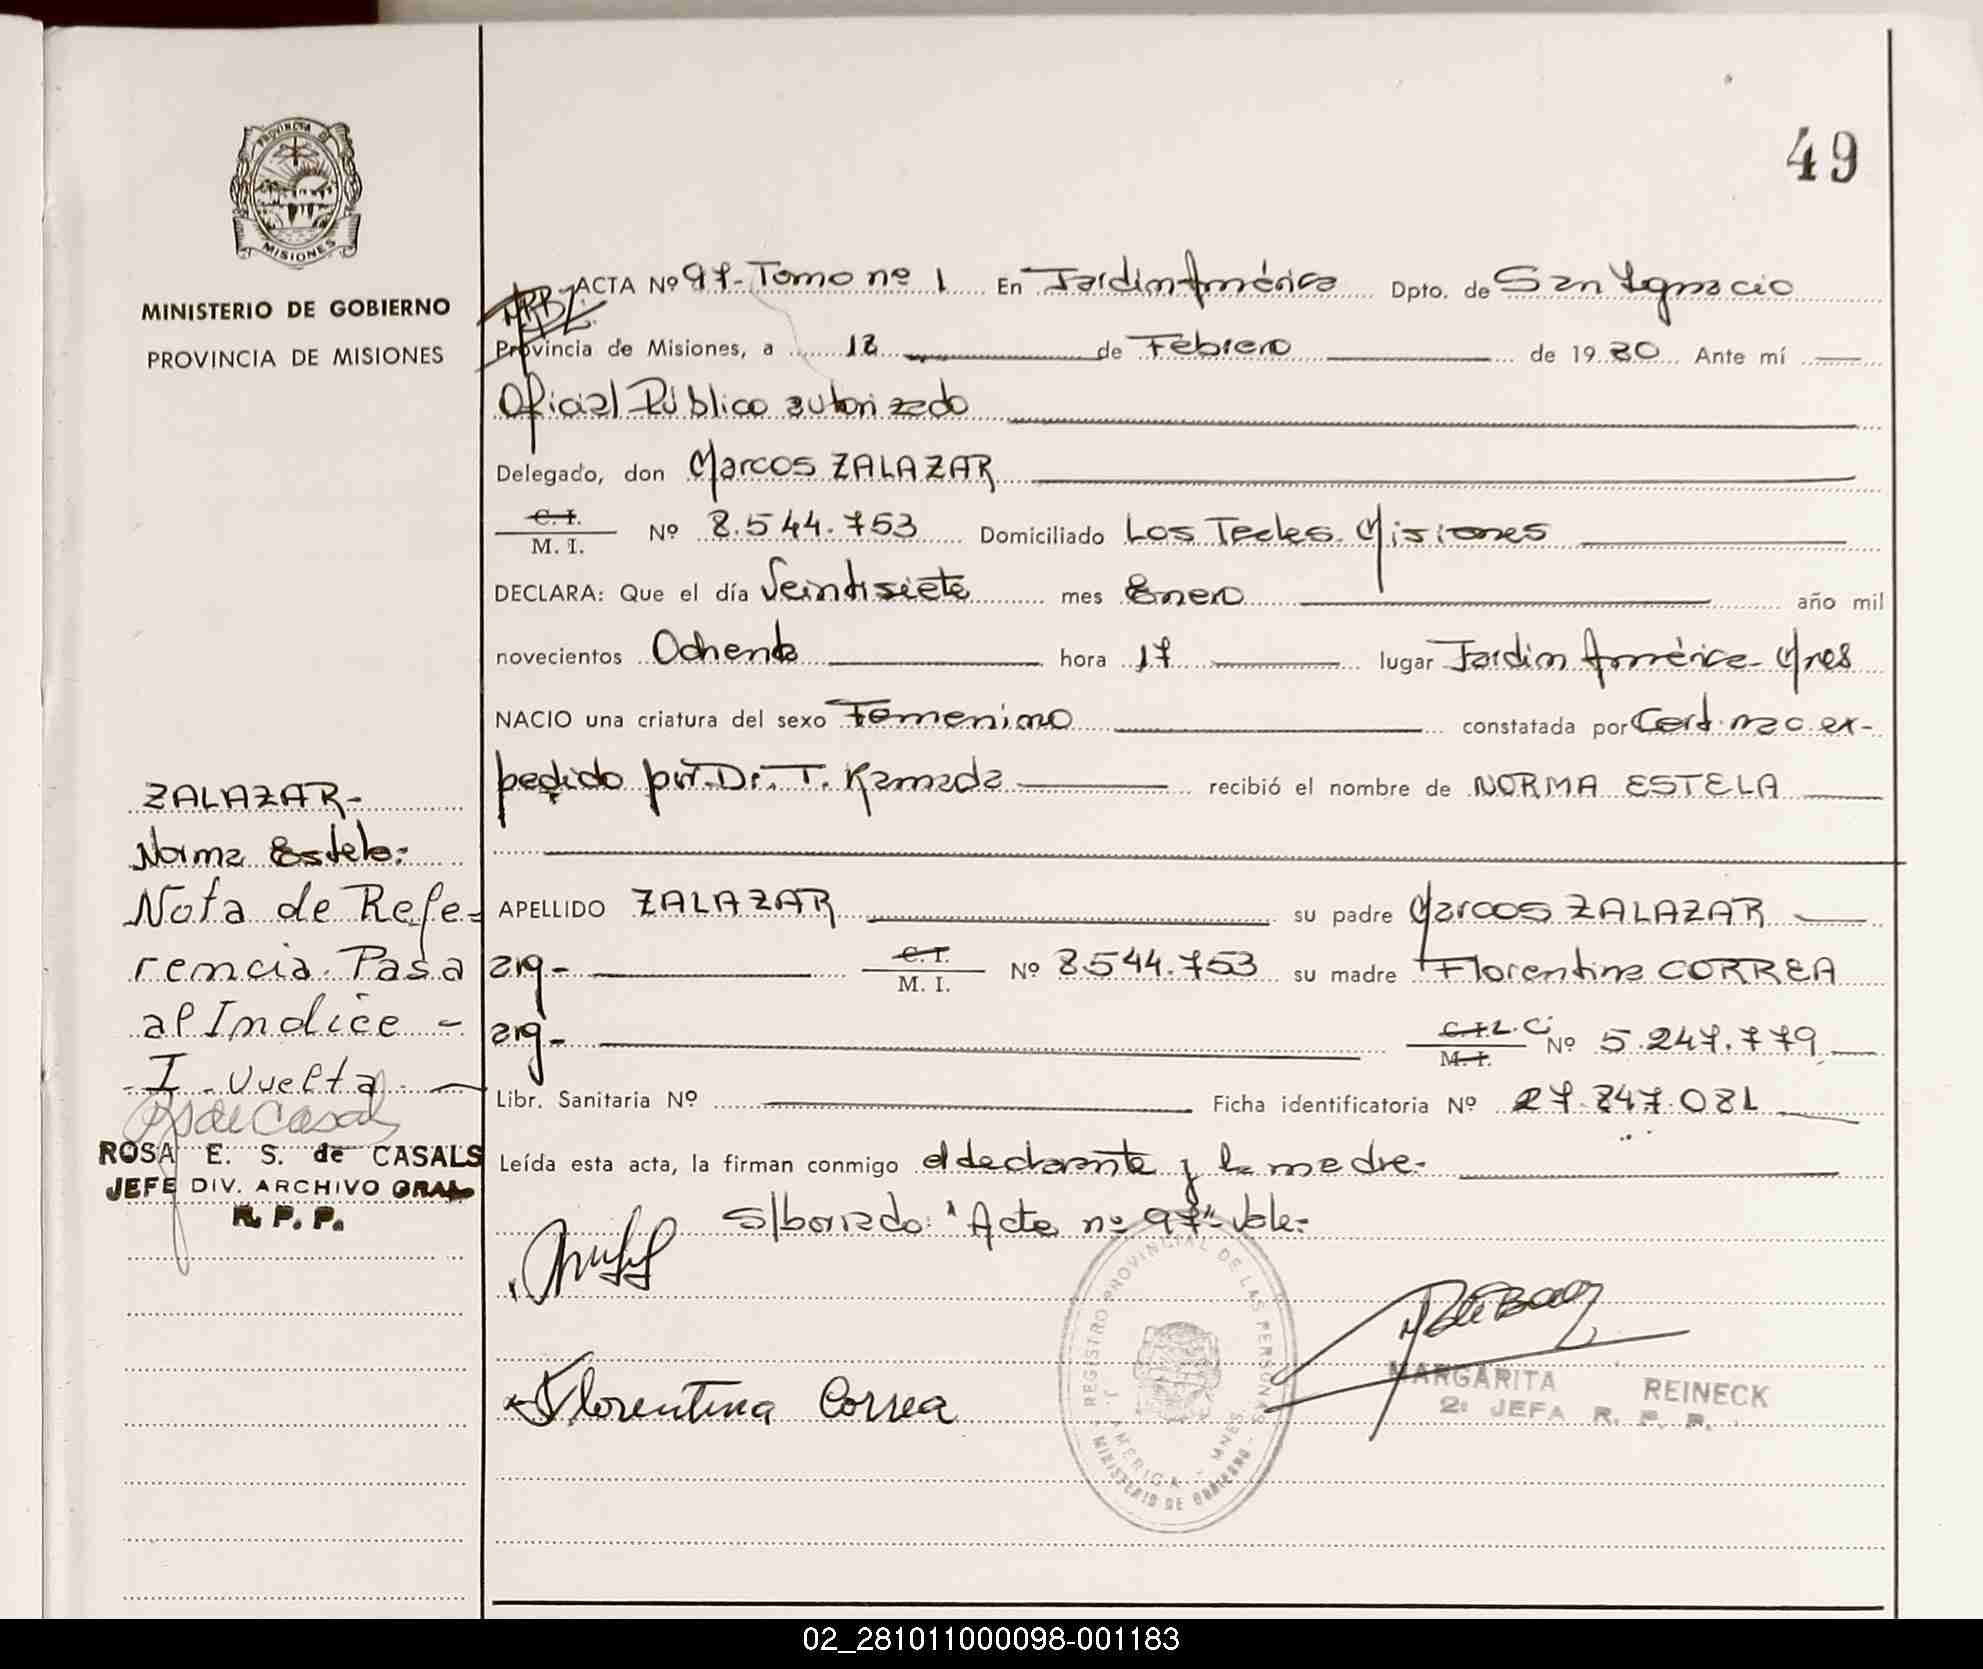 49
PROVINCIA DE
MISIONES
MINISTERIO DE GOBIERNO
PROVINCIA DE MISIONES
ACTA Nº 97- Tomo nº 1 En Jardín América Dpto. de San Ignacio
Provincia de Misiones, a 18 de Febrero de 1980 Ante mí
Oficial Público autorizado
Delegado, don Marcos ZALAZAR
C. I.
M. I. Nº 8.544.753 Domiciliado Los Teales. Misiones
DECLARA: Que el día Veintisiete mes Enero año mil
novecientos Ochenta hora 17 lugar Jardín América- Mnes
NACIO una criatura del sexo Femenino constatada por Cert. nac. ex-
pedido por Dr. T. Kamada recibió el nombre de NORMA ESTELA
APELLIDO ZALAZAR su padre Marcos ZALAZAR
arg- C. I.
M. I. Nº 8.544.753 su madre Florentina CORREA
arg- C. I. L. C.
M. I. Nº 5.247.779
Libr. Sanitaria Nº Ficha identificatoria Nº 27.847.081
Leída esta acta, la firman conmigo el declarante y la madre.-
S/borrado: "Acta nº 97" Vale.-
Florentina Correa
MARGARITA REINECK
2ª JEFA R. P. P.
REGISTRO PROVINCIAL DE LAS PERSONAS
J. AMERICA - MNES.
MINISTERIO DE GOBIERNO
ZALAZAR-
Norma Estela.-
Nota de Refe-
rencia. Pasa
al Indice -
I - Vuelta -
ROSA E. S. de CASALS
JEFE DIV. ARCHIVO GRAL
R. P. P.
02_281011000098-001183